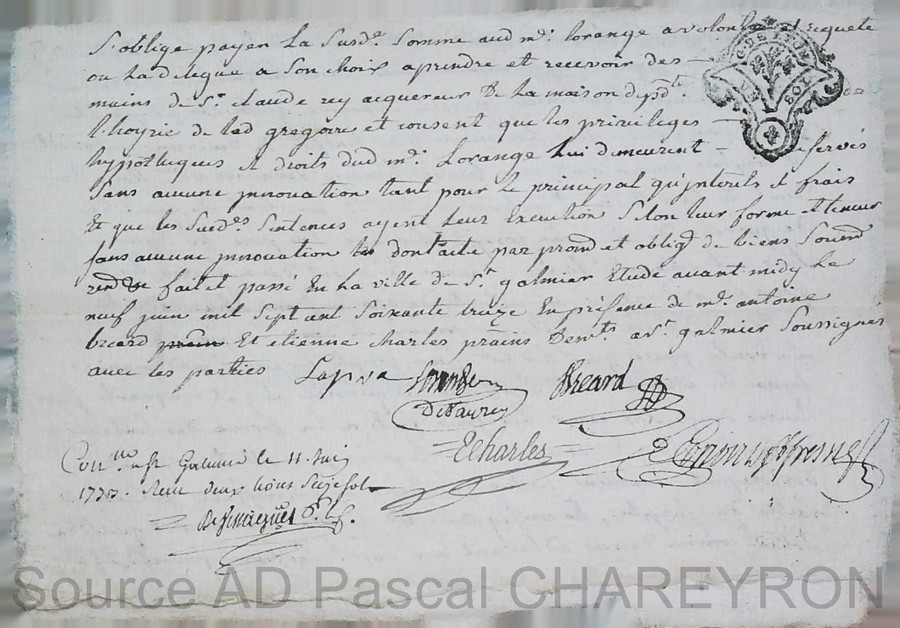 S'oblige payer La Susd.e Somme aud m.r lorange a volonté et Requete
ou La delegue a Son choix aprendre et recevoir des
mains de S.r claude rey acquereur De La maison depd.te
l'hoyrie de lad gregoire et consent que les privileges
hypotheques et droits dud m.r Lorange Lui demeurent reservés
Sans aucune jnnovation tant pour le principal qu'jnterets et frais
Et que les Susd.es Sentences ayent leur Execution Selon leur forme et teneur
sans aucune jnnovation dont acte par prom et oblig de biens Soum
ren fait et passé En La ville de S.t galmier Etude avant midy Le
neuf juin mil Sept cent Soixante treize En présence de m.e antoine
breard Et etienne charles prains Dem.ts a S.t galmier Soussignés
avec les parties
Breard
Charles
Con.lle a S.t Galmier le 11 Juin
1773. Reçu deux livres Six sols
G. DE LYON
Source AD Pascal CHAREYRON